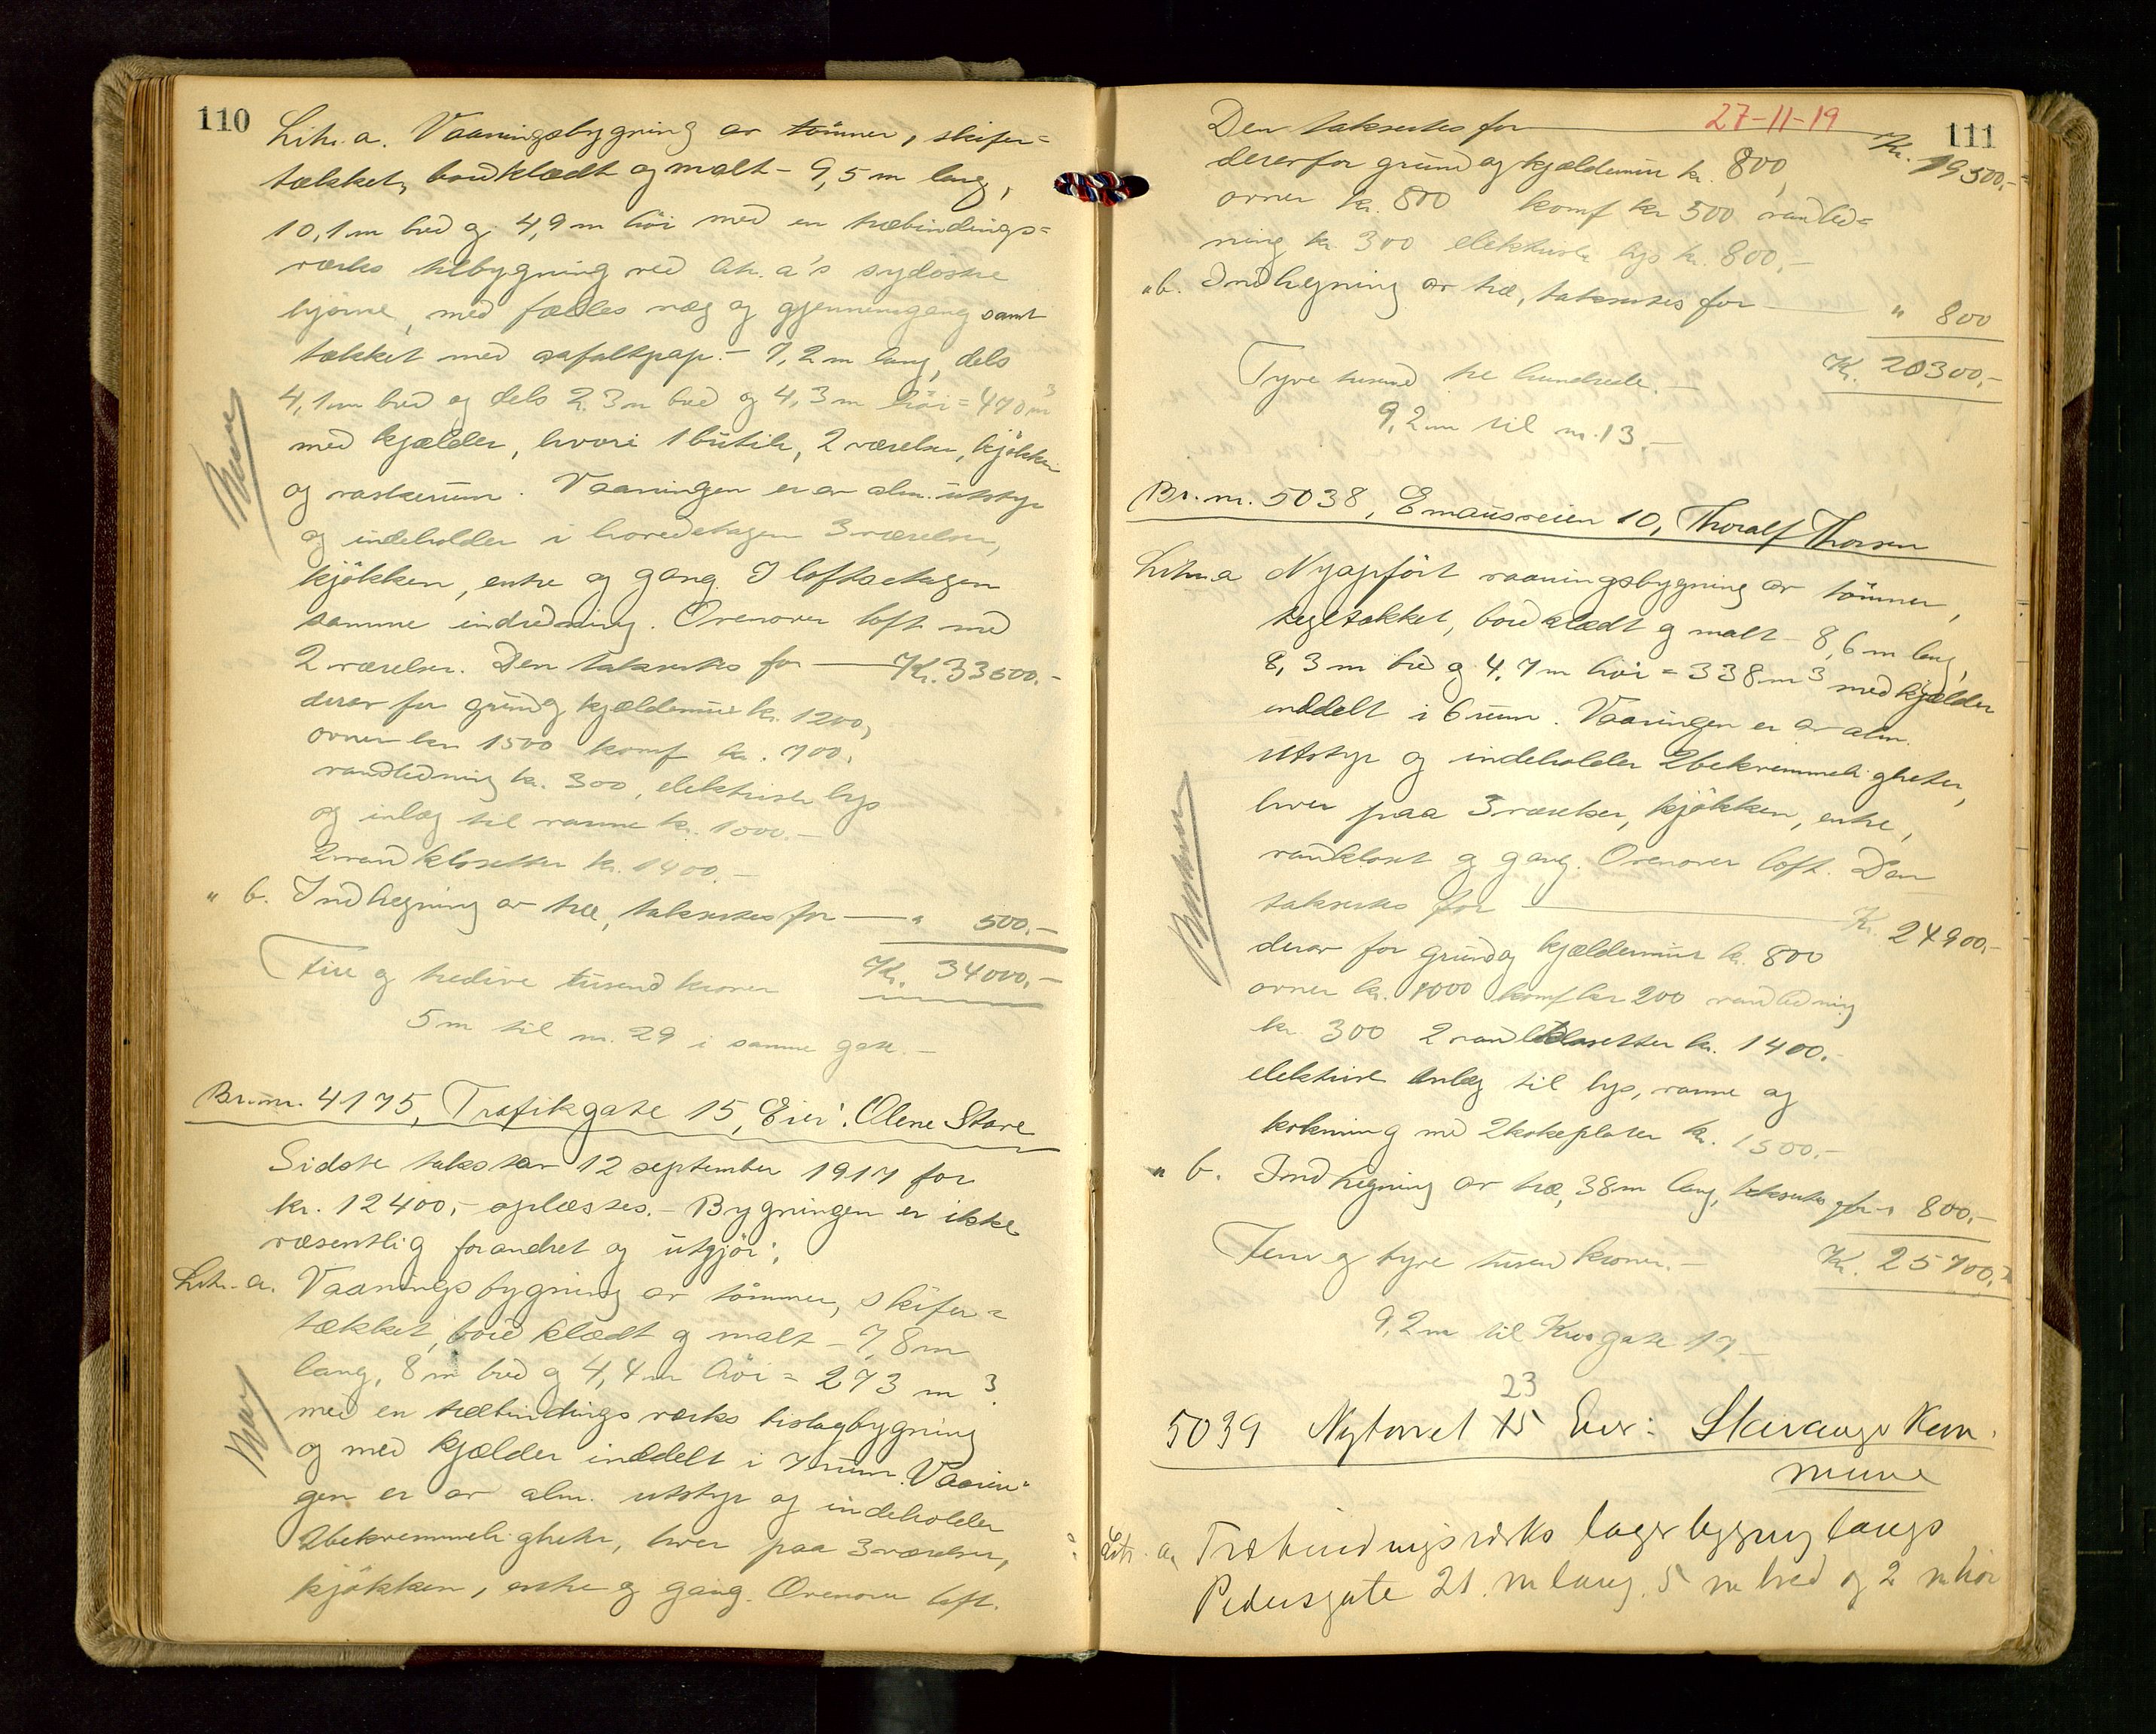 110
Litr. a. Vaaningsbygning av tömmer, skifer=
tækket, bordklædt og malt - 9,5 m lang,
10,1 m bred og 4,9 m höi med en træbindings=
værks tilbygning ved litr. a's sydöstre
hjörne, med fælles væg og gjennemgang samt
tækket med asfaltpap. - 7,2 m lang, dels
4,1 m bred og dels 2,3 m bred og 4,3 m höi = 470 m³
med kjælder, hvori 1 butik, 2 værelser, kjökken
og vaskerum. Vaaningen er av alm. utstyr
og indeholder i hovedetagen 3 værelser,
kjökken, entre og gang. I loftsetagen
samme indredning. Ovenover loft med
2 værelser. Den takseres for — Kr. 33500.-
derav for grund og kjældermur kr. 1200,
ovner kr. 1500 komf kr. 700,
vandledning kr. 300, elektrisk lys
og inlæg til varme kr. 1000.-
2 vandklosetter kr. 1400.-
" b. Indhegning av træ, takseres for — " 500.-
Fire og tredive tusend kroner Kr. 34000,-
5 m til nr. 29 i samme gate.-
Br. nr. 4175, Trafikgate 15, Eier: Olene Stave
Sidste takst av 12 september 1917 for
kr. 12400,- oplæstes.- Bygningen er ikke
væsentlig forandret og utgjör:
Litr. a. Vaaningsbygning av tömmer, skifer=
tækket, bordklædt og malt - 7,8 m
lang, 8 m bred og 4,4 m höi = 273 m³
med en træbindingsværks bislagbygning
og med kjælder inddelt i 7 rum. Vaanin=
gen er av alm. utstyr og indeholder
2 bekvemmeligheter, hver paa 3 værelser,
kjökken, entre og gang. Ovenover loft.
111
27-11-19
Den takseres for — Kr. 19500.-
derav for grund og kjældermur kr. 800,
ovner kr. 800 komf kr 500 vandled=
ning kr. 300 elektrisk lys kr. 800,-
" b. Indhegning av træ, takseres for — " 800
Kr. 20300,-
Tyve tusend tre hundrede.-
9,2 m til nr. 13.-
Br. nr. 5038, Emausveien 10, Thoralf Thorsen
Litr. a Nyopfört vaaningsbygning av tömmer,
tegltækket, bordklædt og malt - 8,6 m lang,
8,3 m bred og 4,7 m höi = 338 m³ med kjælder
inddelt i 6 rum. Vaaningen er av alm.
utstyr og indeholder 2 bekvemmeligheter,
hver paa 3 værelser, kjökken, entre,
vandkloset og gang. Ovenover loft. Den
takseres for — Kr. 24900,-
derav for grund og kjældermur kr. 800
ovner kr. 1000 komf kr 200 vandledning
kr. 300 2 vandklosetter kr. 1400.-
elektrisk inlæg til lys, varme og
kokning med 2 kokeplater kr. 1500.-
" b. Indhegning av træ, 38 m lang, takseres for " 800.-
Kr. 25700,-
Fem og tyve tusen kroner.-
9,2 m til Krosgate 17.-
23
5039 Nytorvet 15 Eier: Stavanger Kom-
mune
Litr. a, Træbindingsværks lagerbygning langs
Pedersgate 21 m lang, 5 m bred og 2 m höi